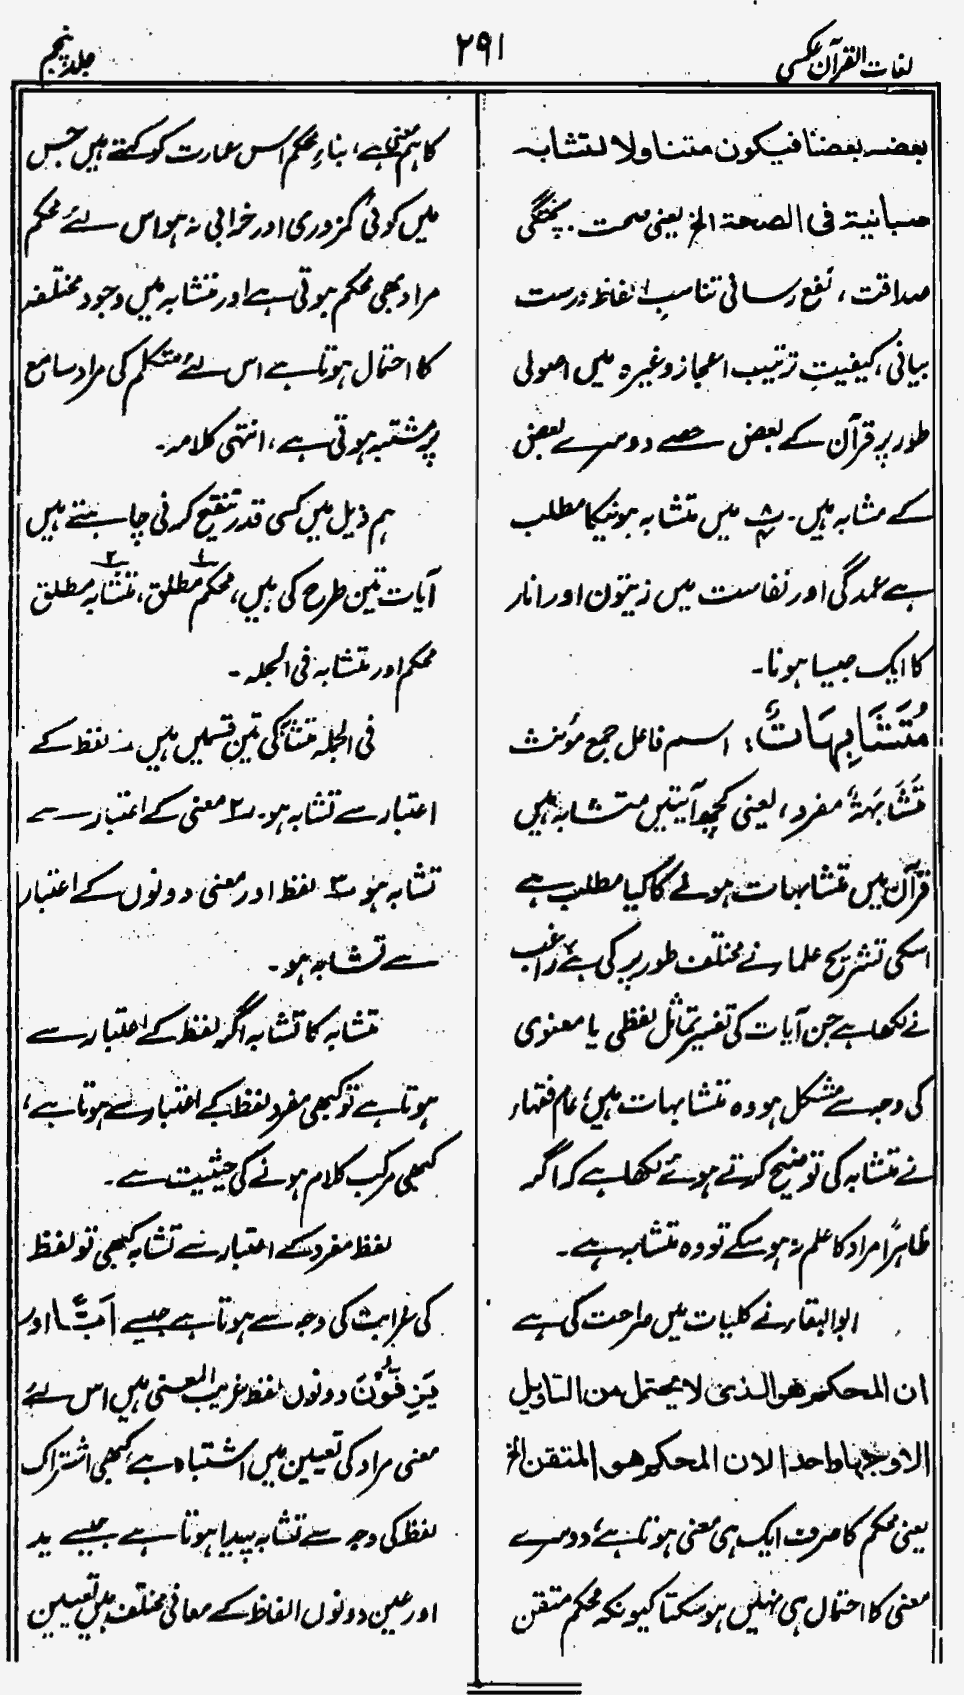 لغات القرآن عکسی
۲۹۱
جلد پنجم
بعضہ بعضنا فیکون متناولا لتشابہ
حسبانیۃ فی الصحۃ الخ یعنی صحت۔ پختگی
صداقت، نفع رسانی تناسب الفاظ درست
بیانی، کیفیت ترتیب اعجاز وغیرہ میں اصولی
طور پر قرآن کے بعض حصے دوسرے بعض
کے مشابہ ہیں۔ میں متشابہ ہونیکا مطلب
ہے عمدگی اور نفاست میں زیتون اور انار
کا ایک جیسا ہونا۔
مُتَشَابِہَاتٌ: اسم فاعل جمع مؤنث
تَشَابَہَۃٌ مفرد، یعنی کچھ آیتیں متشابہ ہیں
قرآن میں متشابہات ہونے کا کیا مطلب ہے
اسکی تشریح علماء نے مختلف طور پر کی ہے راغب
نے لکھا ہے جن آیات کی تفسیر تماثل لفظی یا معنوی
کی وجہ سے مشکل ہو وہ متشابہات ہیں، عام فقہاء
نے متشابہ کی توضیح کرتے ہوئے لکھا ہے کہ اگر
ظاہراً مراد کا علم نہ ہو سکے تو وہ متشابہ ہے۔
ابو البقاء نے کلیات میں صراحت کی ہے
ان المحکم ھو الذی لا یحتمل من التاویل
الا وجھا واحدا لان المحکم ھو المتقن الخ
یعنی محکم کا صرف ایک ہی معنی ہوتا ہے، دوسرے
معنی کا احتمال ہی نہیں ہو سکتا کیونکہ محکم متقن
کا ہم معنی ہے، بناءِ محکم اس عمارت کو کہتے ہیں جس
میں کوئی کمزوری اور خرابی نہ ہو اس لئے محکم
مراد بھی محکم ہوتی ہے اور متشابہ میں وجود مختلفہ
کا احتمال ہوتا ہے اس لئے متکلم کی مراد سامع
پر مشتبہ ہوتی ہے، انتہی کلامہ۔
ہم ذیل میں کسی قدر تنقیح کرنی چاہتے ہیں
آیات تین طرح کی ہیں، محکم مطلق، متشابہ مطلق
محکم اور متشابہ فی الجملہ۔
فی الجملہ متشابہ کی تین قسمیں ہیں ۱ لفظ کے
اعتبار سے تشابہ ہو۔ ۲ معنی کے اعتبار سے
تشابہ ہو ۳ لفظ اور معنی دونوں کے اعتبار
سے تشابہ ہو۔
متشابہ کا تشابہ اگر لفظ کے اعتبار سے
ہوتا ہے تو کبھی مفرد لفظ کے اعتبار سے ہوتا ہے،
کبھی مرکب کلام ہونے کی حیثیت سے۔
لفظ مفرد کے اعتبار سے تشابہ کبھی تو لفظ
کی غرابت کی وجہ سے ہوتا ہے جیسے اَبًّا اور
یَزِفُّوْنَ دونوں لفظ غریب المعنی ہیں اس لئے
معنی مراد کی تعیین میں اشتباہ ہے، کبھی اشتراک
لفظ کی وجہ سے تشابہ پیدا ہوتا ہے جیسے ید
اور عین دونوں الفاظ کے معانی مختلف ہیں تعیین